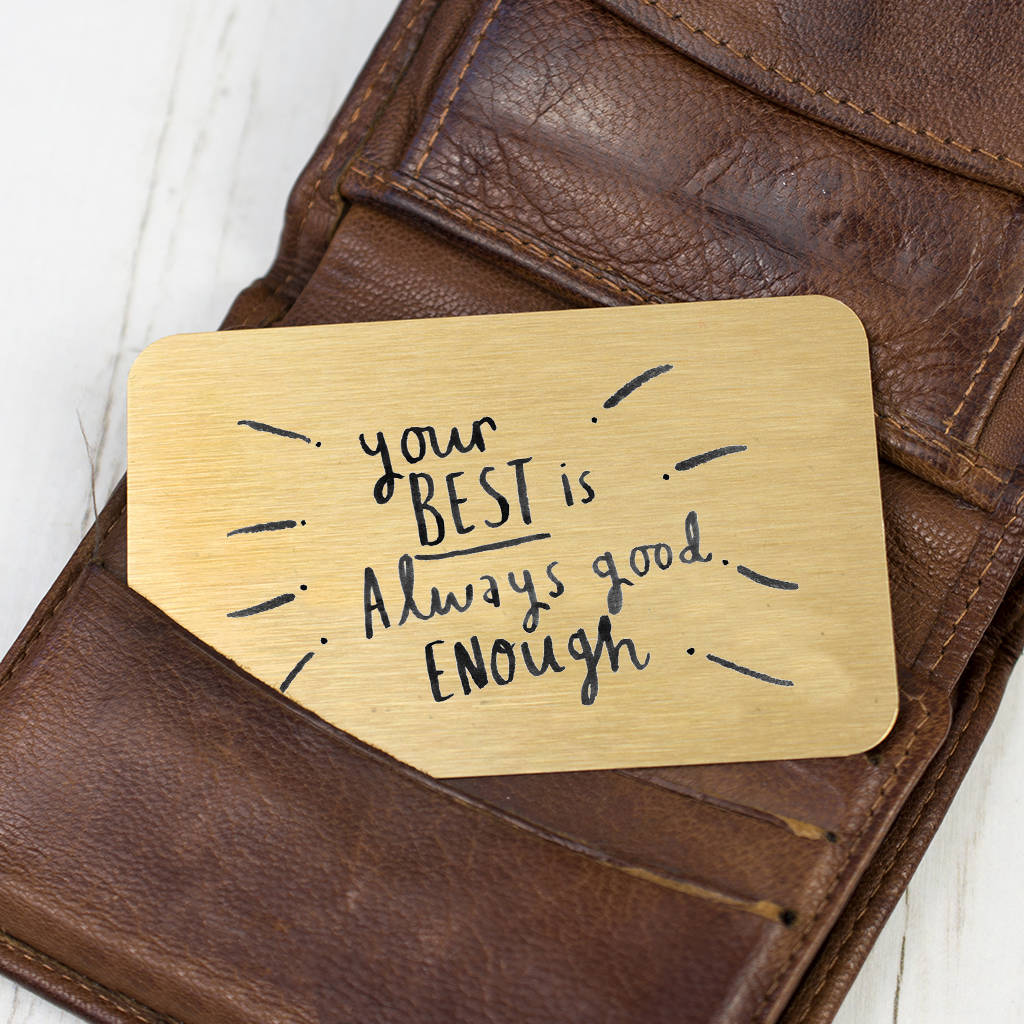 your
BEST is
Always good
ENOugh